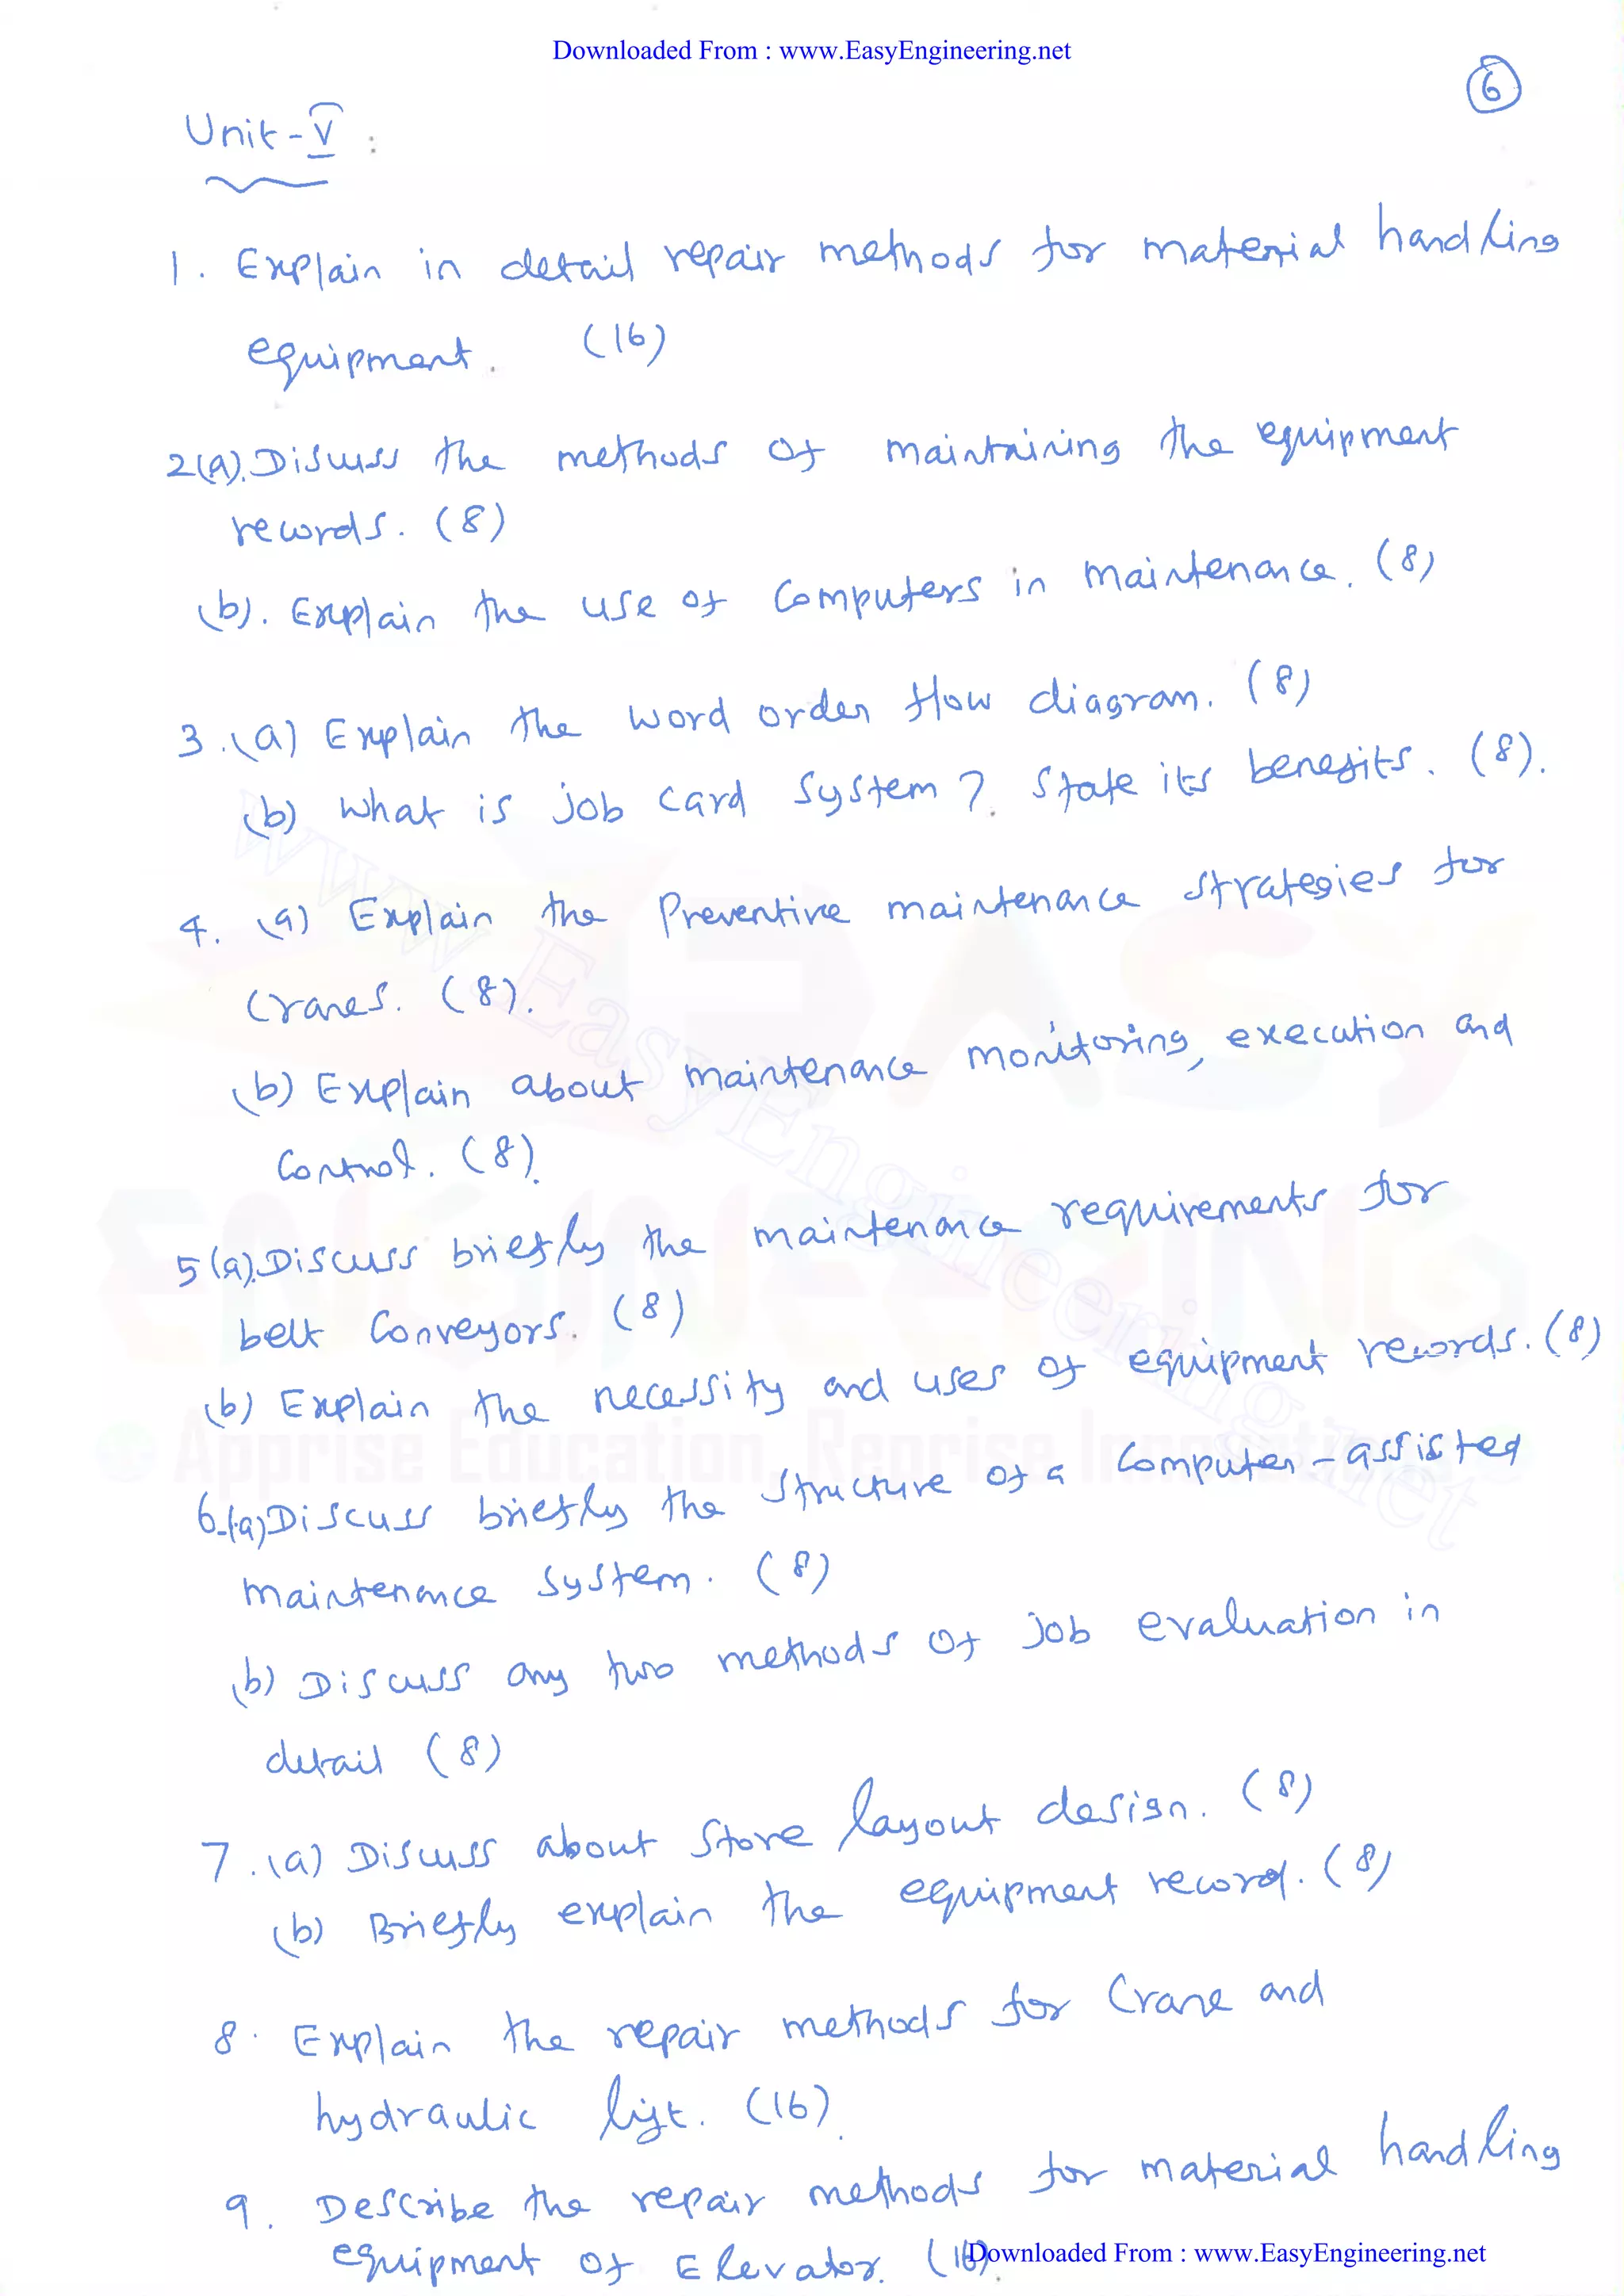 Downloaded From : www.EasyEngineering.net
6
Unit-V :
1. Explain in detail repair methods for material handling
equipment. (16)
2(a). Discuss the methods of maintaining the equipment
records. (8)
(b). Explain the use of Computers in maintenance. (8)
3.(a) Explain the word order flow diagram. (8)
(b) What is job card System? State its benefits. (8).
4. (a) Explain the Preventive maintenance strategies for
Cranes. (8).
(b) Explain about maintenance monitoring, execution and
Control. (8).
5(a).Discuss briefly the maintenance requirements for
belt Conveyors. (8)
(b) Explain the necessity and uses of equipment records. (8)
6.(a)Discuss briefly the structure of a Computer-assisted
maintenance System. (8)
(b) Discuss any two methods of job evaluation in
detail (8)
7.(a) Discuss about Store layout design. (8)
(b) Briefly explain the equipment record. (8)
8. Explain the repair methods for Crane and
hydraulic lift. (16).
9. Describe the repair methods for material handling
equipment of Elevator. (16).
Downloaded From : www.EasyEngineering.net
www.EasyEngineering.net
EASY
ENGINEERING
Apprise Education, Reprise Innovations